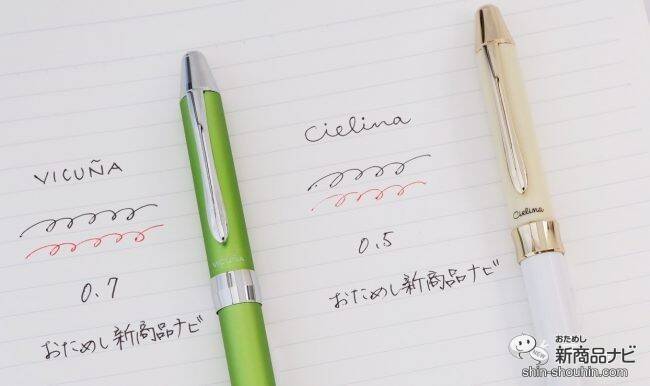 VICUÑA
0.7
おためし新商品ナビ
VICUÑA
Cielina
0.5
おためし新商品ナビ
Cielina
NEW
おためし
新商品ナビ
shin-shouhin.com